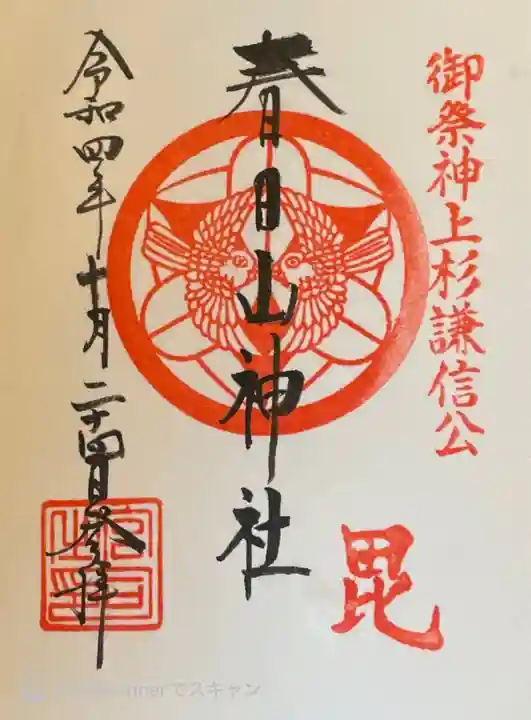 御祭神上杉謙信公
毘
春日山神社
令和四年十月二十四日参拝
でスキャン